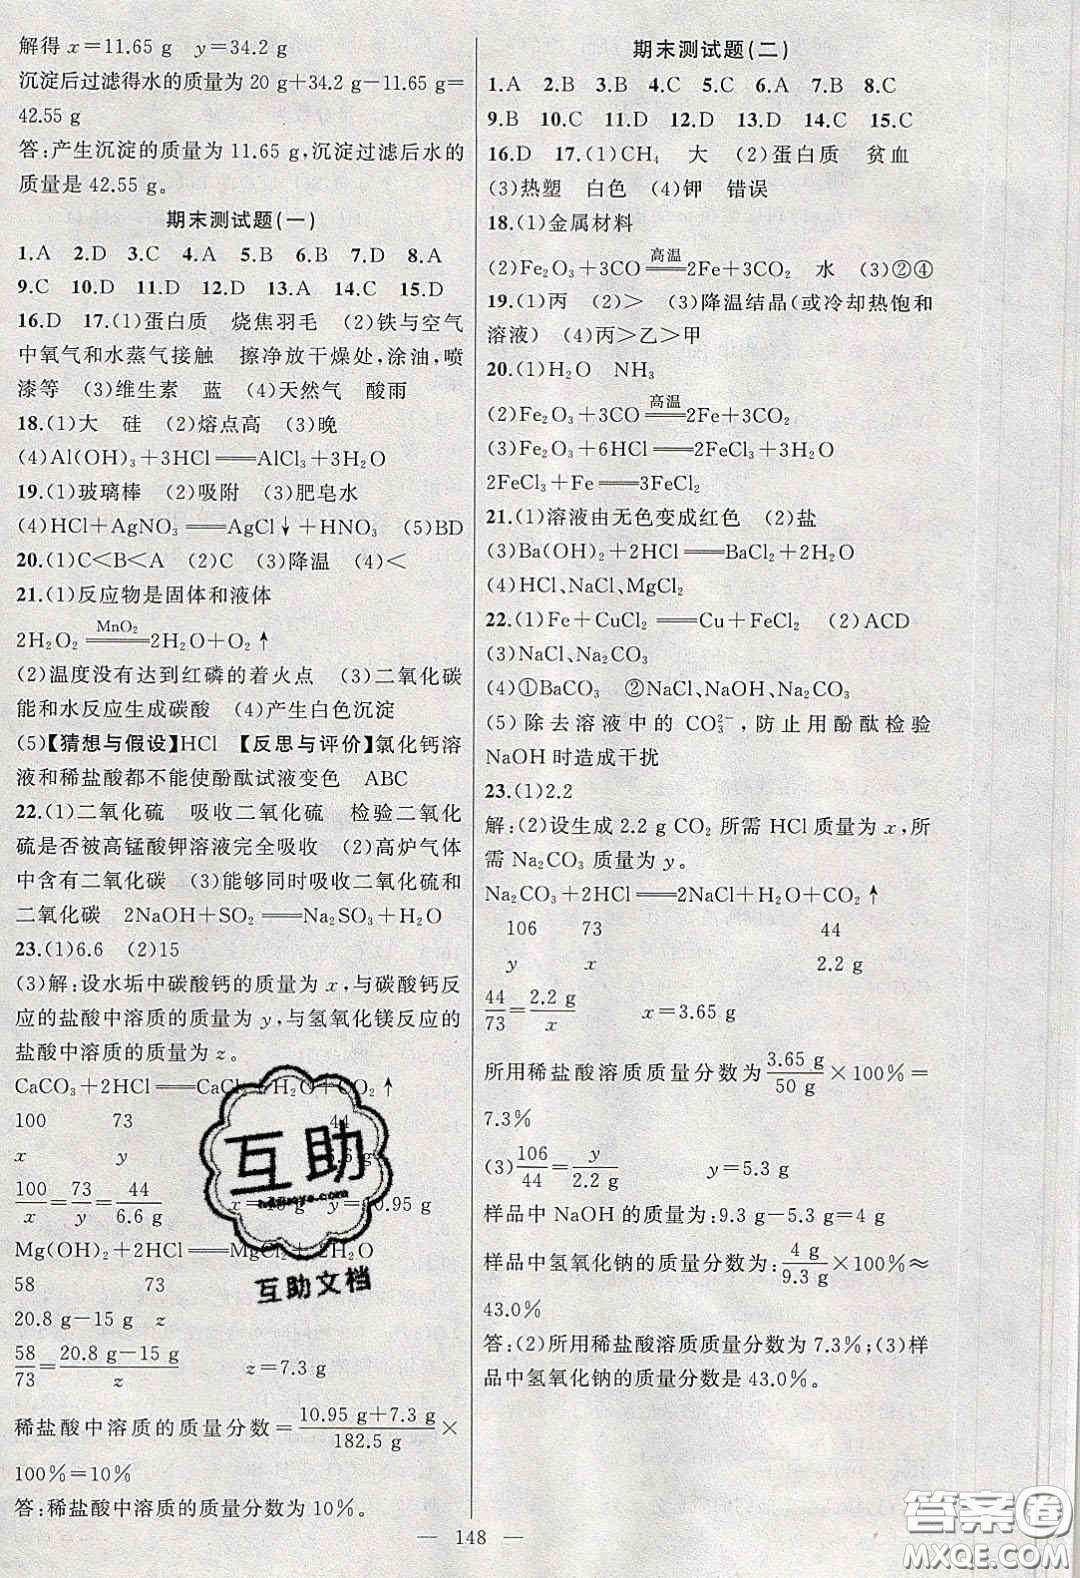 解得 x=11.65 g y=34.2 g
沉淀后过滤得水的质量为 20 g+34.2 g-11.65 g=
42.55 g
答:产生沉淀的质量为 11.65 g,沉淀过滤后水的
质量是 42.55 g。
期末测试题(一)
1.A 2.D 3.C 4.A 5.B 6.D 7.D 8.A
9.C 10.D 11.D 12.D 13.A 14.C 15.D
16.D 17.(1)蛋白质 烧焦羽毛 (2)铁与空气
中氧气和水蒸气接触 擦净放干燥处,涂油,喷
漆等 (3)维生素 蓝 (4)天然气 酸雨
18.(1)大 硅 (2)熔点高 (3)晚
(4)Al(OH)₃+3HCl══AlCl₃+3H₂O
19.(1)玻璃棒 (2)吸附 (3)肥皂水
(4)HCl+AgNO₃══AgCl↓+HNO₃ (5)BD
20.(1)C<B<A (2)C (3)降温 (4)<
21.(1)反应物是固体和液体
MnO₂
2H₂O₂══2H₂O+O₂↑
(2)温度没有达到红磷的着火点 (3)二氧化碳
能和水反应生成碳酸 (4)产生白色沉淀
(5)【猜想与假设】HCl 【反思与评价】氯化钙溶
液和稀盐酸都不能使酚酞试液变色 ABC
22.(1)二氧化硫 吸收二氧化硫 检验二氧化
硫是否被高锰酸钾溶液完全吸收 (2)高炉气体
中含有二氧化碳 (3)能够同时吸收二氧化硫和
二氧化碳 2NaOH+SO₂══Na₂SO₃+H₂O
23.(1)6.6 (2)15
(3)解:设水垢中碳酸钙的质量为 x,与碳酸钙反
应的盐酸中溶质的质量为 y,与氢氧化镁反应的
盐酸中溶质的质量为 z。
CaCO₃+2HCl══CaCl₂+H₂O+CO₂↑
100 73 44
x y 6.6 g
100/x=73/y=44/6.6 g x=15 g y=10.95 g
Mg(OH)₂+2HCl══MgCl₂+2H₂O
58 73
20.8 g-15 g z
58/73=20.8 g-15 g/z z=7.3 g
稀盐酸中溶质的质量分数=10.95 g+7.3 g/182.5 g×
100%=10%
答:稀盐酸中溶质的质量分数为 10%。
期末测试题(二)
1.A 2.B 3.B 4.C 5.C 6.A 7.B 8.C
9.B 10.C 11.D 12.D 13.D 14.C 15.C
16.D 17.(1)CH₄ 大 (2)蛋白质 贫血
(3)热塑 白色 (4)钾 错误
18.(1)金属材料
高温
(2)Fe₂O₃+3CO══2Fe+3CO₂ 水 (3)②④
19.(1)丙 (2)> (3)降温结晶(或冷却热饱和
溶液) (4)丙>乙>甲
20.(1)H₂O NH₃
高温
(2)Fe₂O₃+3CO══2Fe+3CO₂
(3)Fe₂O₃+6HCl══2FeCl₃+3H₂O
2FeCl₃+Fe══3FeCl₂
21.(1)溶液由无色变成红色 (2)盐
(3)Ba(OH)₂+2HCl══BaCl₂+2H₂O
(4)HCl、NaCl、MgCl₂
22.(1)Fe+CuCl₂══Cu+FeCl₂ (2)ACD
(3)NaCl、Na₂CO₃
(4)①BaCO₃ ②NaCl、NaOH、Na₂CO₃
(5)除去溶液中的 CO₃²⁻,防止用酚酞检验
NaOH 时造成干扰
23.(1)2.2
解:(2)设生成 2.2 g CO₂ 所需 HCl 质量为 x,所
需 Na₂CO₃ 质量为 y。
Na₂CO₃+2HCl══2NaCl+H₂O+CO₂↑
106 73 44
y x 2.2 g
44/73=2.2 g/x x=3.65 g
所用稀盐酸溶质质量分数为3.65 g/50 g×100%=
7.3%
(3)106/44=y/2.2 g y=5.3 g
样品中 NaOH 的质量为:9.3 g-5.3 g=4 g
样品中氢氧化钠的质量分数为:4 g/9.3 g×100%≈
43.0%
答:(2)所用稀盐酸溶质质量分数为 7.3%;(3)样
品中氢氧化钠的质量分数是 43.0%。
— 148 —
互助
互助文档
答案圈
MXQE.COM